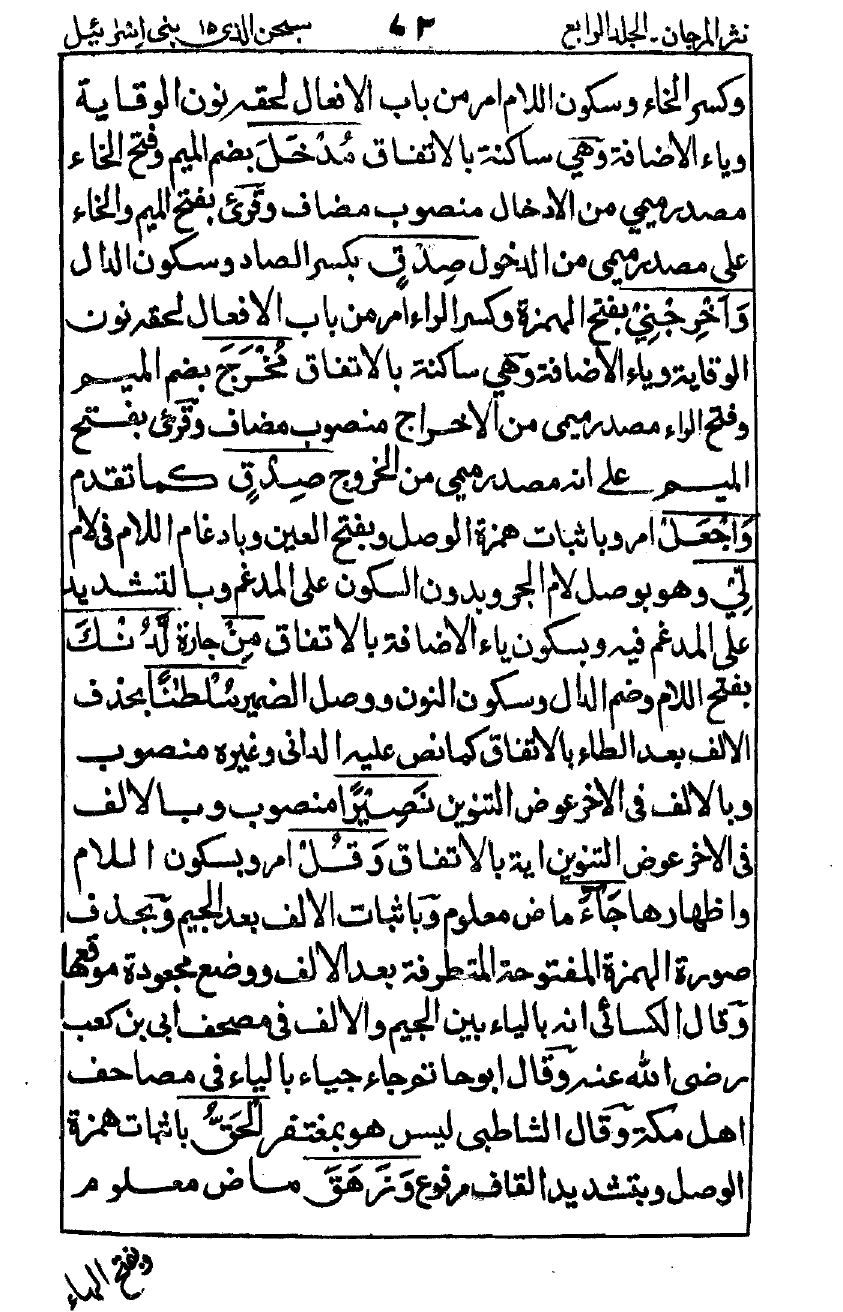 نثر المرجان ـ الجلد الرابع ٤٣ سبحن الذى ١٥ بنى اسرائيل
وكسر الخاء وسكون اللام امر من باب الافعال لحقه نون الوقاية
وياء الاضافة وهى ساكنة بالاتفاق مُدْخَلَ بضم الميم وفتح الخاء
مصدر ميمي من الادخال منصوب مضاف وقرئ بفتح الميم والخاء
على مصدر ميمى من الدخول صِدْقٍ بكسر الصاد وسكون الدال
وَاَخْرِجْنِيْ بفتح الهمزة وكسر الراء امر من باب الافعال لحقه نون
الوقاية وياء الاضافة وهى ساكنة بالاتفاق مُخْرَجَ بضم الميم
وفتح الراء مصدر ميمى من الاخراج منصوب مضاف وقرئ بفتح
الميم على انه مصدر ميمي من الخروج صِدْقٍ كما تقدم
وَاجْعَلْ امر وباثبات همزة الوصل وبفتح العين وبادغام اللام فى لام
لِّيْ وهو بوصل لام الجر وبدون السكون على المدغم وبالتشديد
على المدغم فيه وبسكون ياء الاضافة بالاتفاق مِنْ جارة لَّدُنْكَ
بفتح اللام وضم الدال وسكون النون ووصل الضمير سُلْطٰنًا بحذف
الالف بعد الطاء بالاتفاق كما نص عليه الدانى وغيره منصوب
وبالالف فى الاخر عوض التنوين نَصِيْرًا منصوب وبالالف
فى الاخر عوض التنوين اية بالاتفاق وَقُلْ امر وبسكون اللام
واظهارها جَآءَ ماض معلوم وباثبات الالف بعد الجيم وبحذف
صورة الهمزة المفتوحة المتطرفة بعد الالف ووضع مجعودة موقعها
وقال الكسائى انه بالياء بين الجيم والالف فى مصحف ابى بن كعب
رضى الله عنه وقال ابو حاتم جاء جياء بالياء فى مصاحف
اهل مكة وقال الشاطبى ليس هو بمغتفر الْحَقُّ باثبات همزة
الوصل وبتشديد القاف مرفوع وَزَهَقَ ماض معلوم
وبفتح الهاء